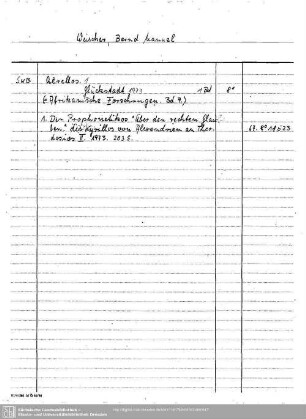 Weischer, Bernd Manuel
SWB Qērellos. 1
Glückstadt 1973 1 Bd 8°
(= Afrikanische Forschungen. Bd 7.)
1. Der Prosphonetikos "Über den rechten Glau-
ben" des Kyrillos von Alexandrien an Theo-
dosios II. 1973. 203 S. 67. 8° 11523
Sächsische Landesbibliothek -
Staats- und Universitätsbibliothek Dresden